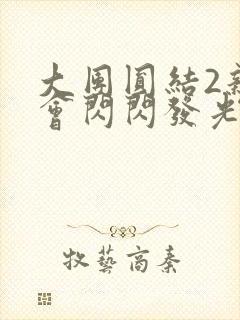 大團圓結2
會閃閃發光
牧藝高秦